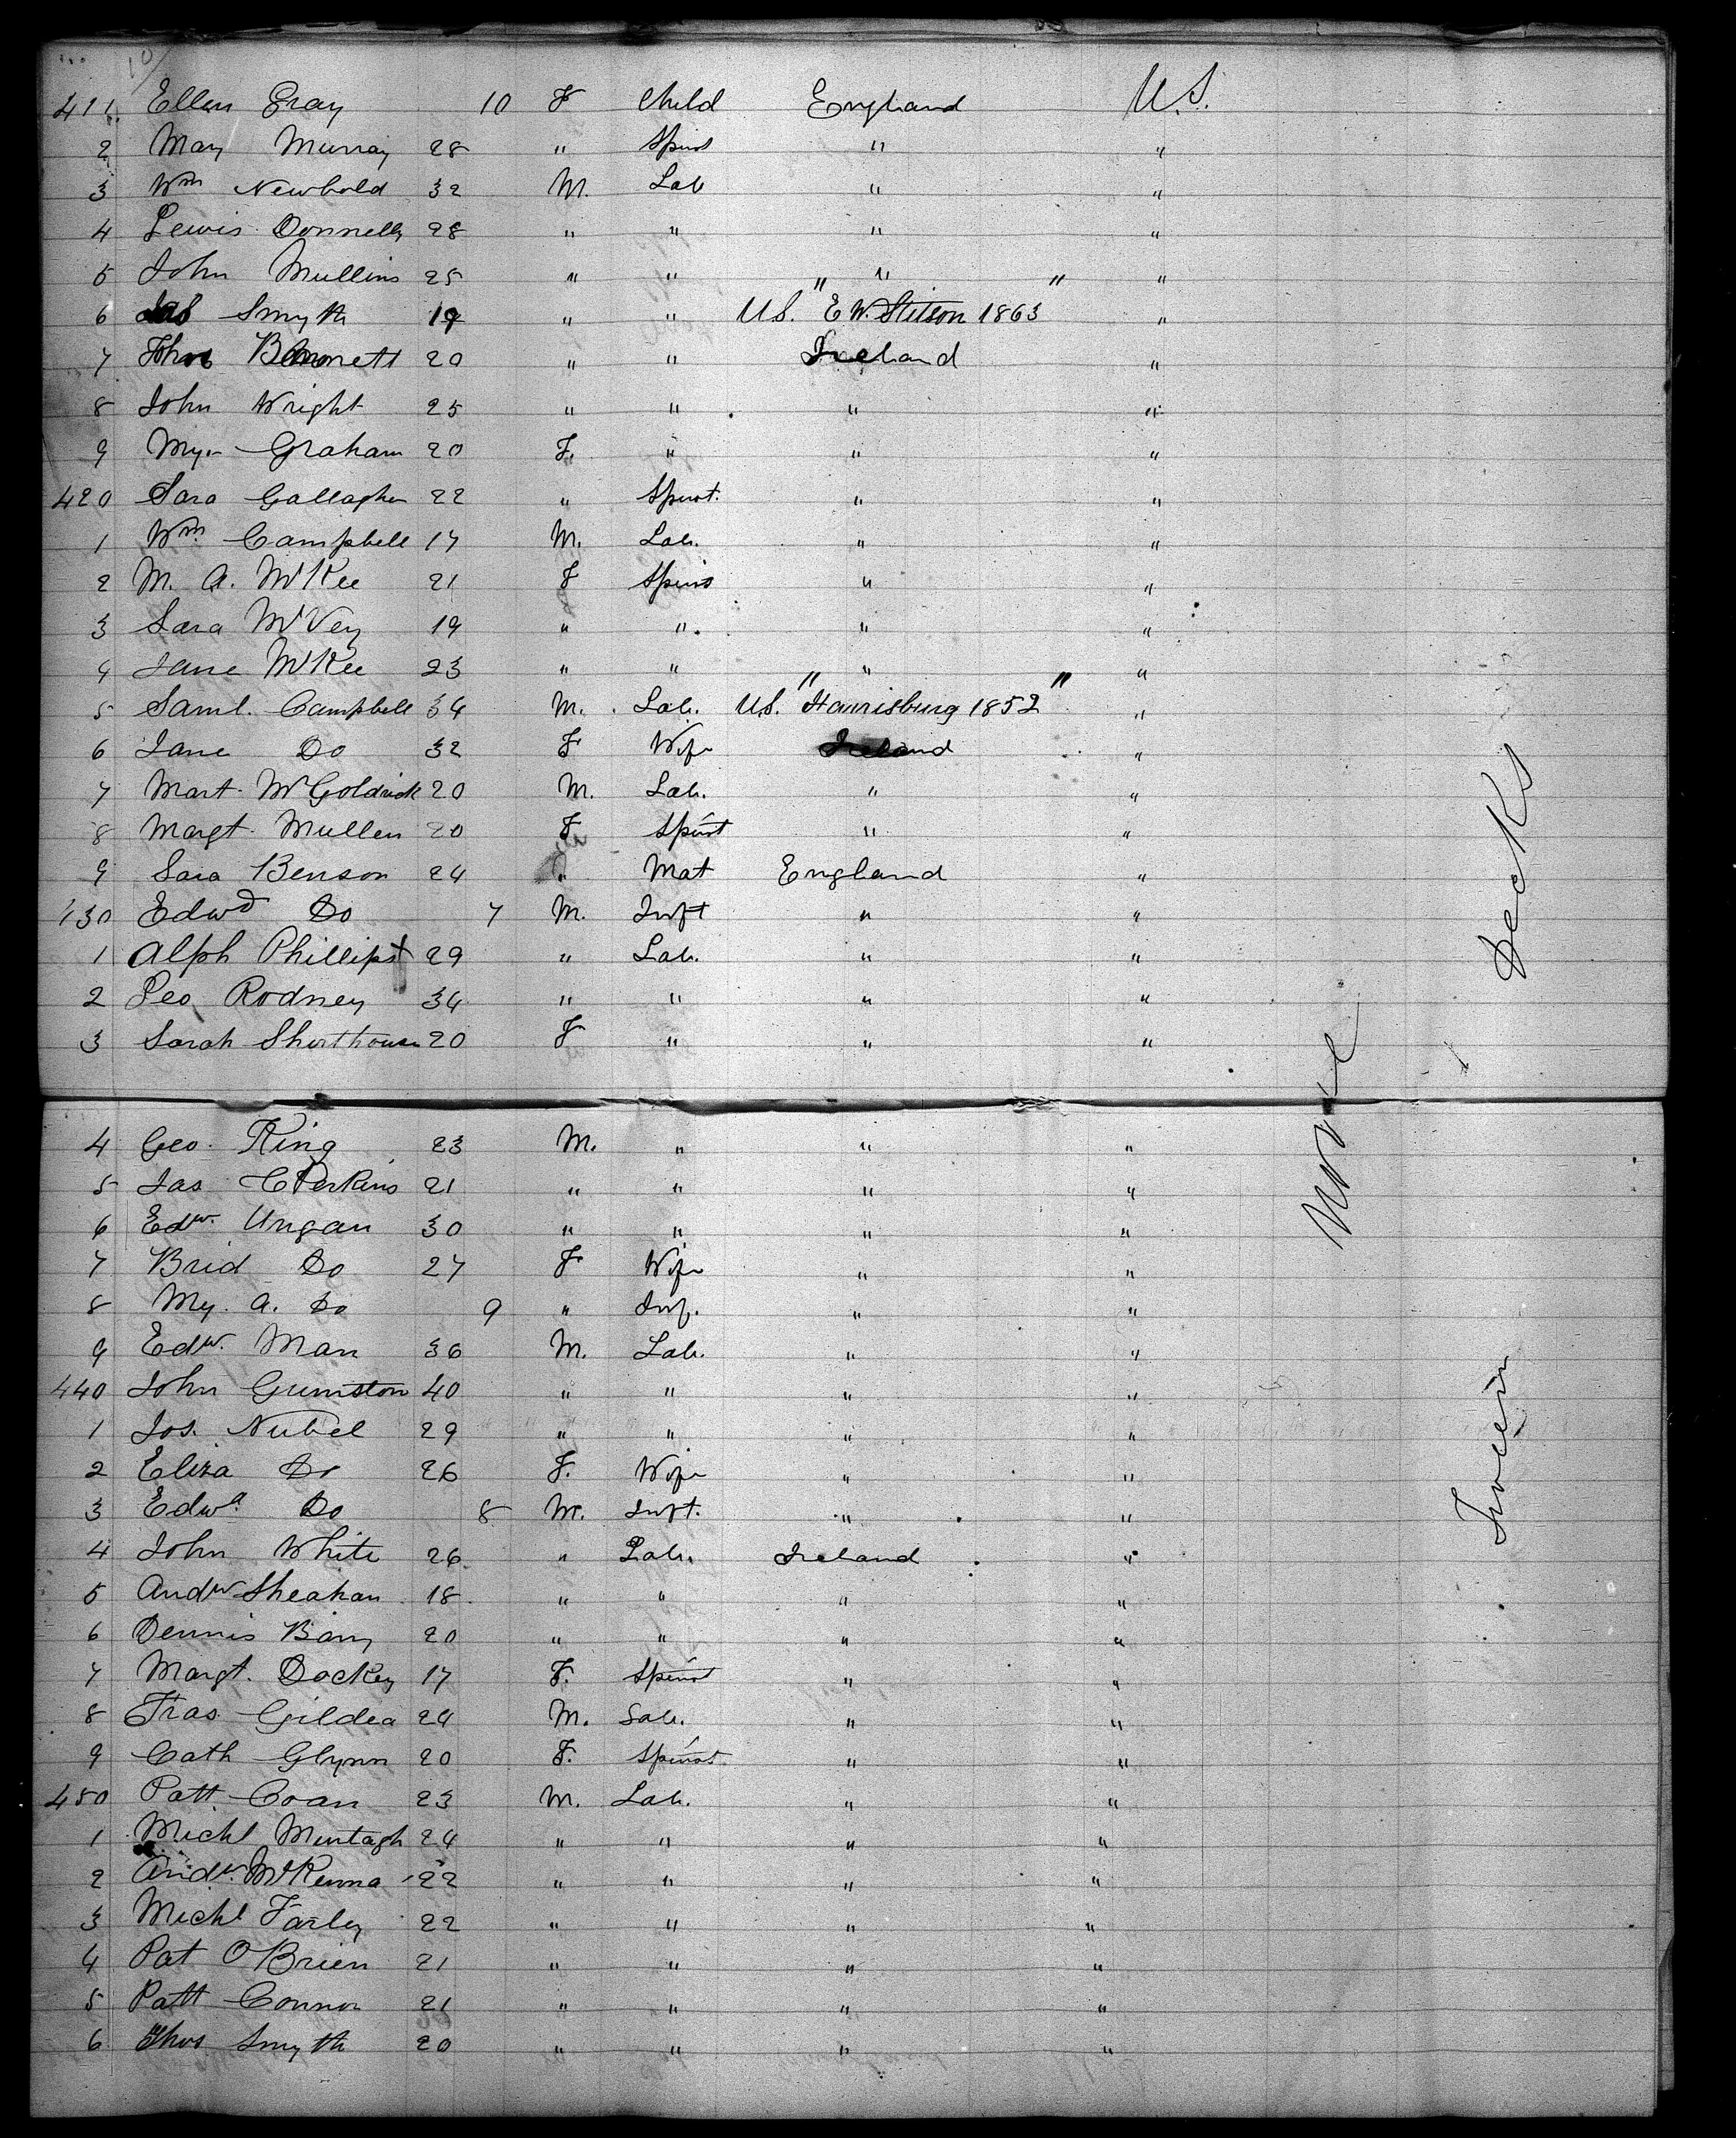 10
411. Ellen Gray 10 F Child England U.S.
2 Mary Murray 28 " Spinst " "
3 Wm Newbold 32 M. Lab " "
4 Lewis Donnelly 28 " " " "
5 John Mullins 25 " " " "
6 Jas Smyth 19 " " U.S. "E. W. Stitson 1863" "
7 Thos Bennett 20 " " Ireland "
8 John Wright 25 " " " "
9 My. Graham 20 F. " " "
420 Sara Gallagher 22 " Spinst. " "
1 Wm Campbell 17 M. Lab. " "
2 M. A. McKee 21 F Spins " "
3 Sara McVey 19 " " " "
4 Jane McKee 23 " " " "
5 Saml. Campbell 34 M. Lab. U.S. "Harrisburg 1852" "
6 Jane Do 32 F Wife Ireland "
7 Mart. McGoldrick 20 M. Lab. " "
8 Margt. Mullen 20 F Spinst " "
9 Sara Benson 24 " Mat England "
430 Edwd Do 7 M. Inft " "
1 Alph Phillips 29 " Lab. " "
2 Leo Rodney 34 " " " "
3 Sarah Shorthouse 20 F " " "
4 Geo. King 23 M. " " "
5 Jas. C Perkins 21 " " " "
6 Edw. Ungan 30 " " " "
7 Brid Do 27 F Wife " "
8 My. A. Do 9 " Inf. " "
9 Edw. Man 36 M. Lab. " "
440 John Gumston 40 " " " "
1 Jos. Nubel 29 " " " "
2 Eliza Do 26 F. Wife " "
3 Edwd. Do 8 M. Inft. " "
4 John White 26 " Lab. Ireland "
5 Andw Sheahan 18 " " " "
6 Dennis Barry 20 " " " "
7 Margt. Dockey 17 F. Spinst " "
8 Fras. Gildea 24 M. Lab. " "
9 Cath Glynn 20 F. Spinst " "
450 Patt Coan 23 M. Lab. " "
1 Michl Murtagh 24 " " " "
2 Andw. McKenna 22 " " " "
3 Michl Farley 22 " " " "
4 Pat O'Brien 21 " " " "
5 Patt Connor 21 " " " "
6 Thos Smyth 20 " " " "
None
Lower
Decks